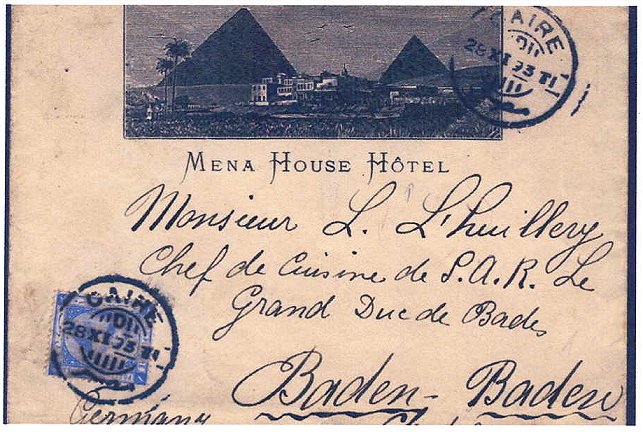 CAIRE
28 XI 93 T1
MENA HOUSE HÔTEL
Monsieur L. L'huillery
Chef de Cuisine de S.A.R. Le
Grand Duc de Bade
CAIRE
28 XI 93 T1
Baden-Baden
Germany